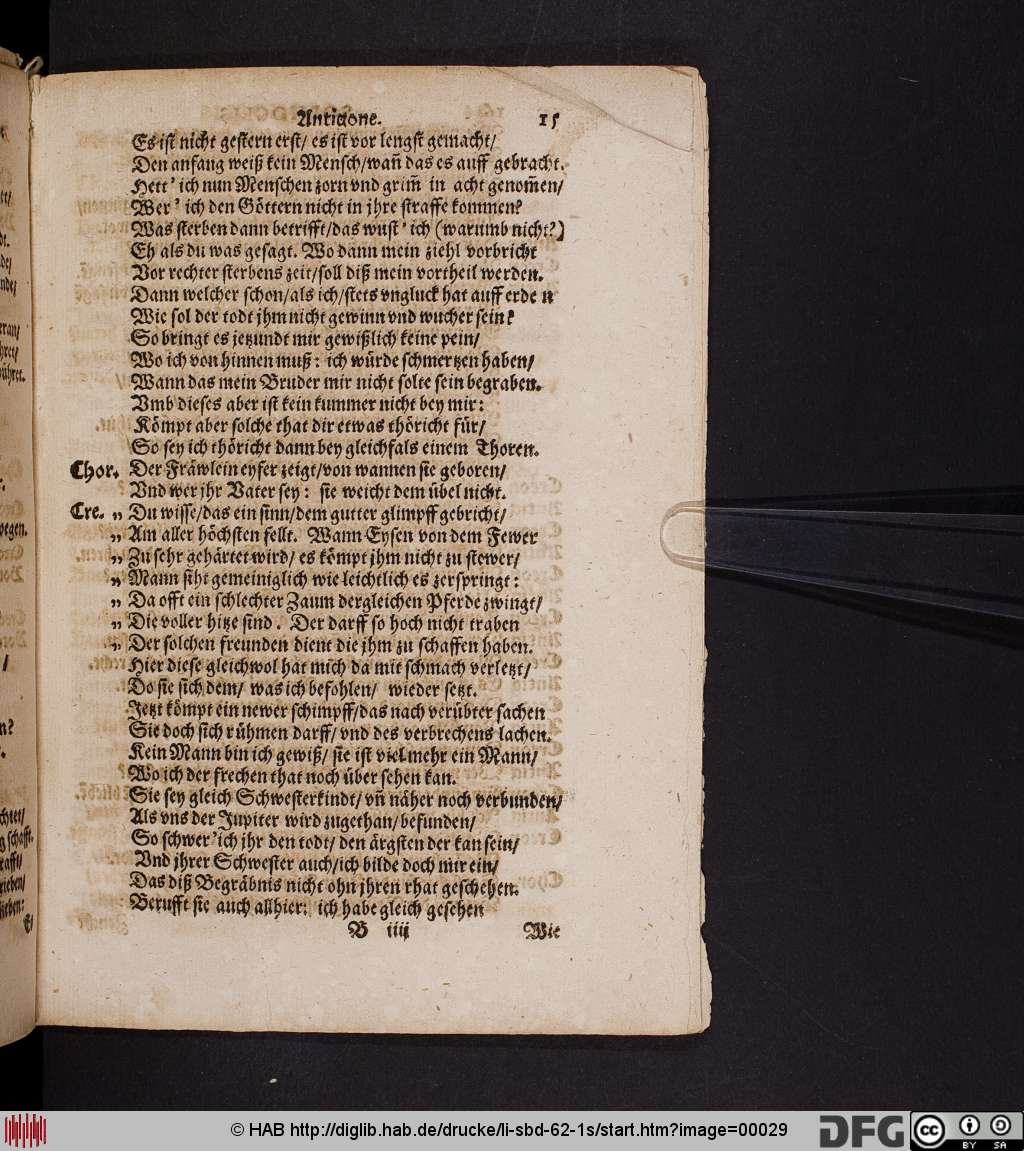 Antigone. 15
Es ist nicht gestern erst/ es ist vor lengst gemacht/
Den anfang weiß kein Mensch/wañ das es auff gebracht.
Hett' ich nun Menschen zorn vnd grim̃ in acht genom̃en/
Wer' ich den Göttern nicht in jhre straffe kommen?
Was sterben dann betrifft/das wust' ich (warumb nicht?)
Eh als du was gesagt. Wo dann mein ziehl vorbricht
Vor rechter sterbens zeit/soll diß mein vortheil werden.
Dann welcher schon/als ich/stets vngluck hat auff erde n
Wie sol der todt jhm nicht gewinn vnd wucher sein?
So bringt es jetzundt mir gewißlich keine pein/
Wo ich von hinnen muß: ich würde schmertzen haben/
Wann das mein Bruder mir nicht solte sein begraben.
Vmb dieses aber ist kein kummer nicht bey mir:
Kömpt aber solche that dir etwas thöricht für/
So sey ich thöricht dann bey gleichfals einem Thoren.
Chor. Der Fräwlein eyfer zeigt/von wannen sie geboren/
Vnd wer jhr Vater sey: sie weicht dem übel nicht.
Cre. „ Du wisse/das ein sinn/dem gutter glimpff gebricht/
„ Am aller höchsten fellt. Wann Eysen von dem Fewer
„ Zu sehr gehärtet wird/ es kömpt jhm nicht zu stewer/
„ Mann siht gemeiniglich wie leichtlich es zerspringt:
„ Da offt ein schlechter Zaum dergleichen Pferde zwingt/
„ Die voller hitze sind. Der darff so hoch nicht traben
„ Der solchen freunden dient die jhm zu schaffen haben.
Hier diese gleichwol hat mich da mit schmach verletzt/
Do sie sich dem/ was ich befohlen/ wieder setzt.
Jetzt kömpt ein newer schimpff/das nach verübter sachen
Sie doch sich rühmen darff/ vnd des verbrechens lachen.
Kein Mann bin ich gewiß/ sie ist viel mehr ein Mann/
Wo ich der frechen that noch über sehen kan.
Sie sey gleich Schwesterkindt/ vñ näher noch verbunden/
Als vns der Jupiter wird zugethan/befunden/
So schwer' ich jhr den todt/ den ärgsten der kan sein/
Vnd jhrer Schwester auch/ich bilde doch mir ein/
Das diß Begräbnis nicht ohn jhren rhat geschehen.
Berufft sie auch allhier: ich habe gleich gesehen
B iiij Wie
© HAB http://diglib.hab.de/drucke/li-sbd-62-1s/start.htm?image=00029
DFG
cc
BY SA